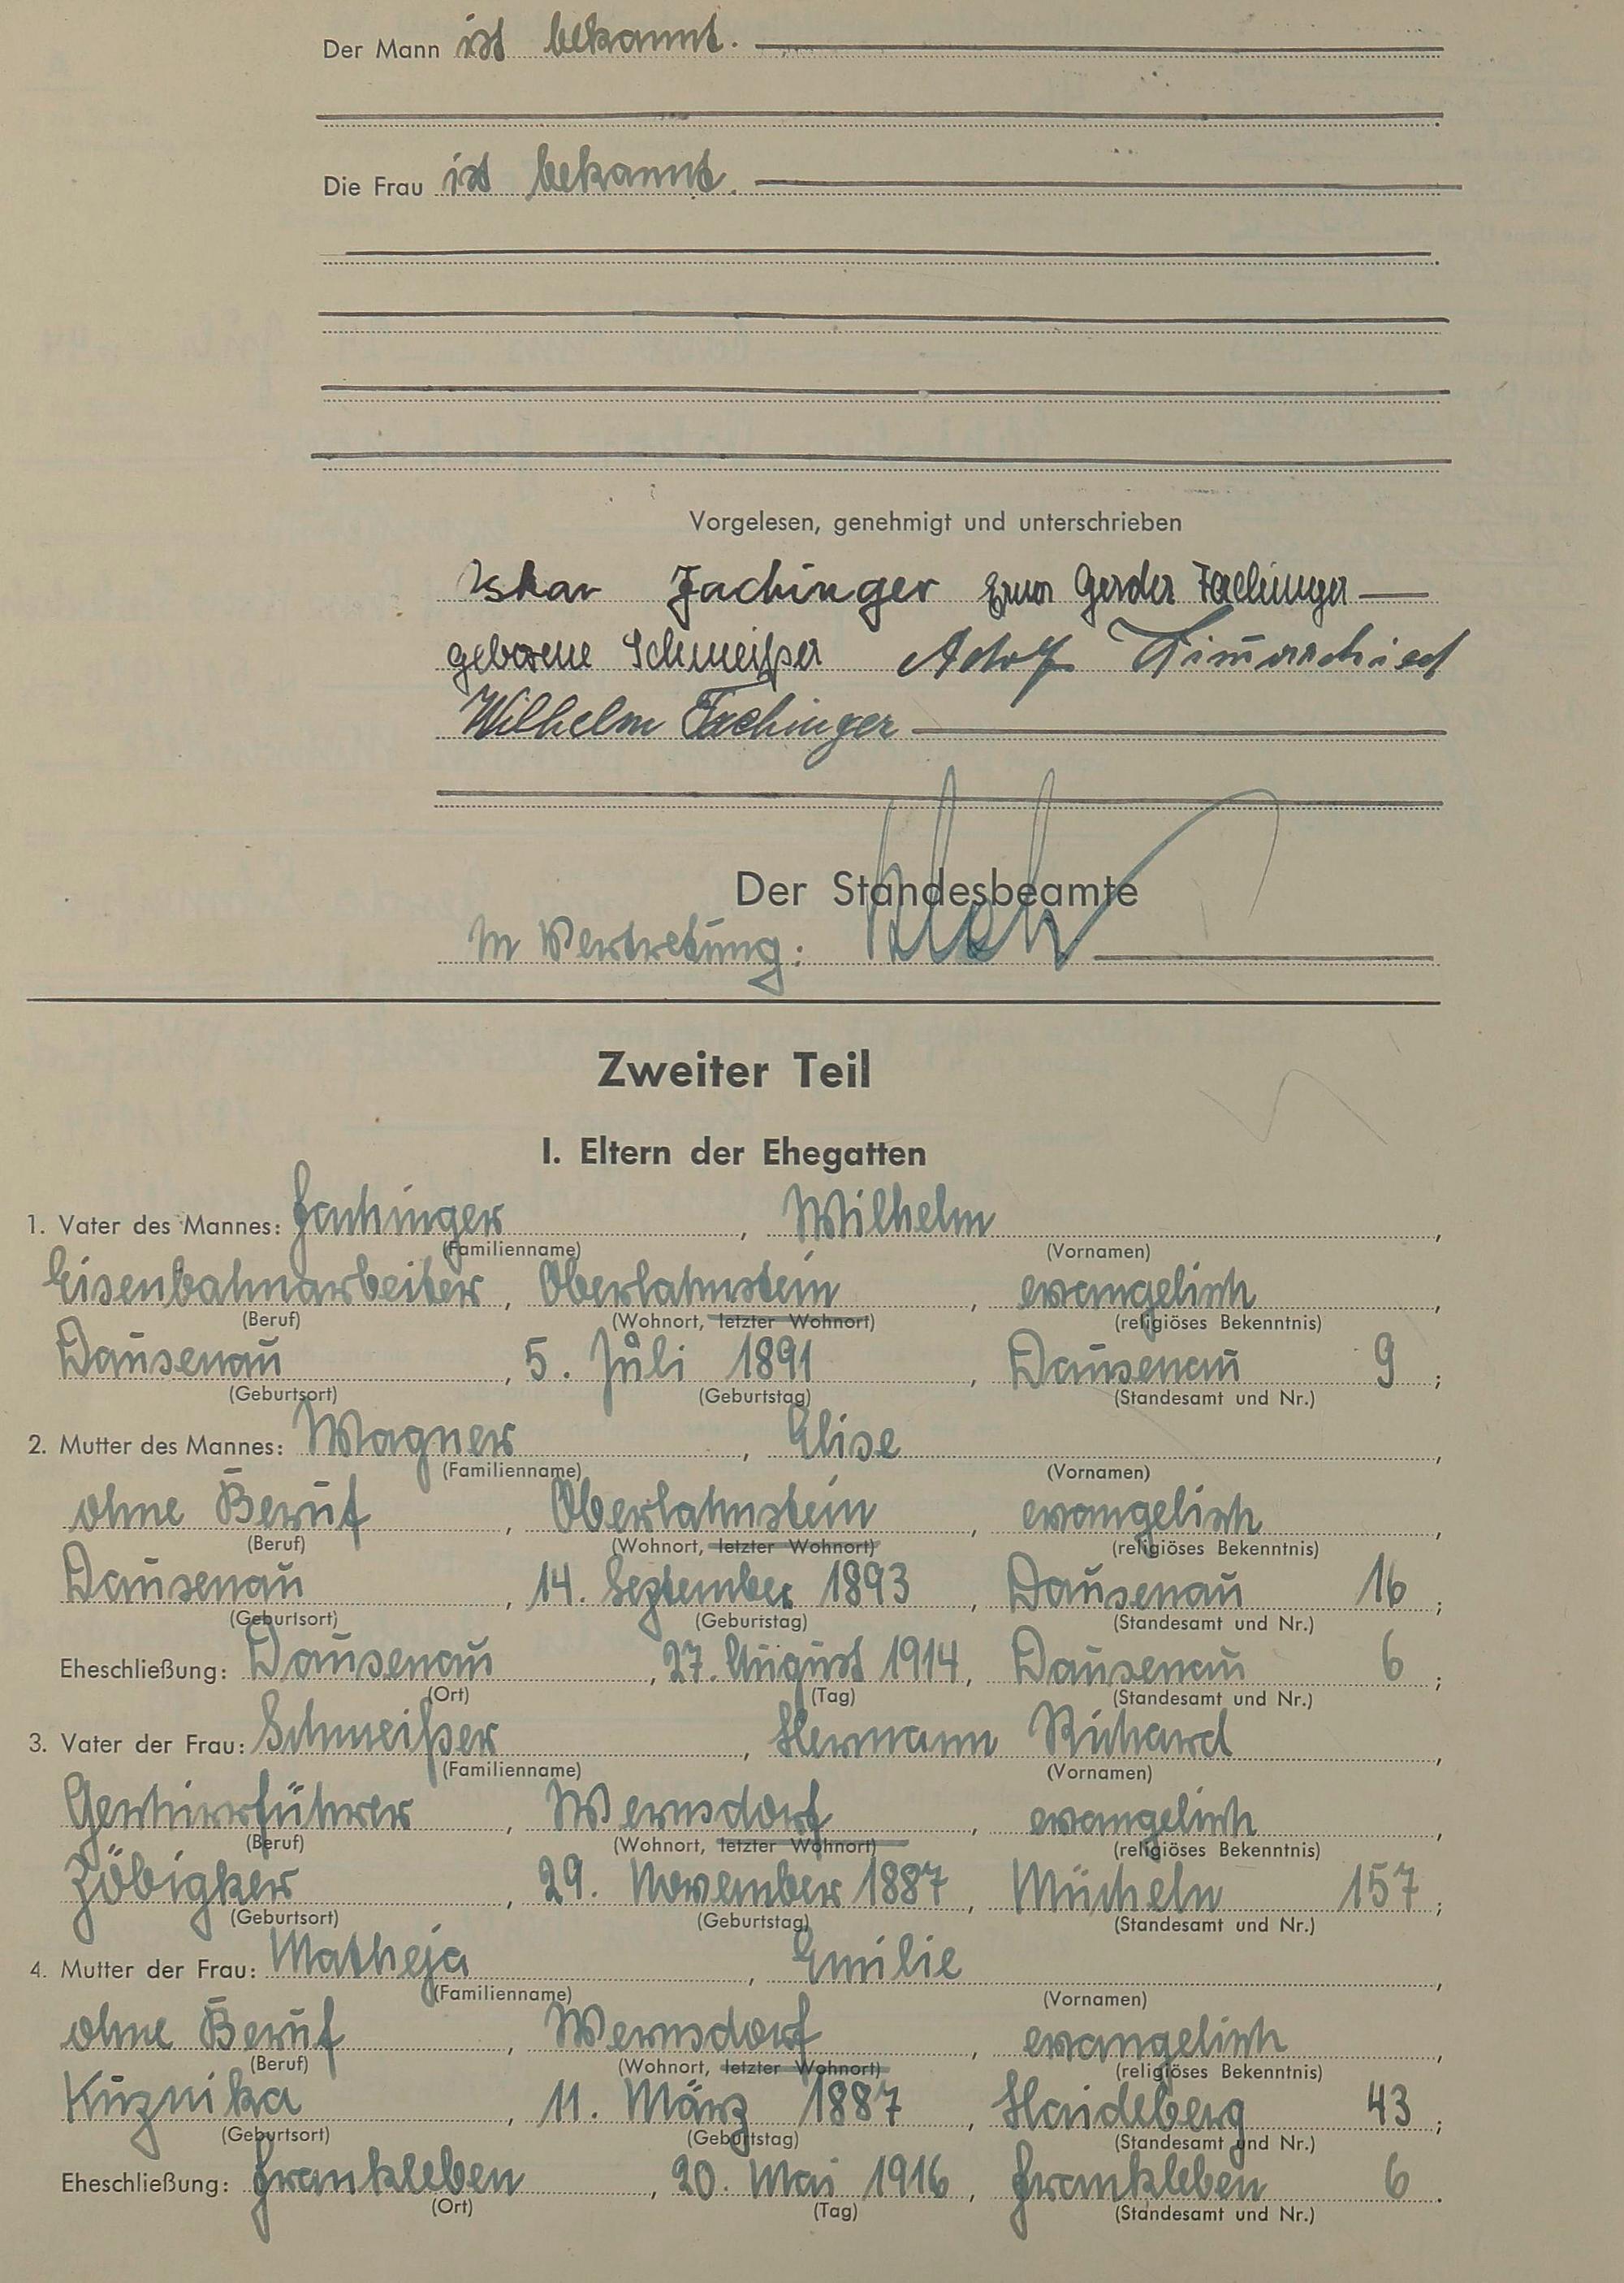 Der Mann ist bekannt.
Die Frau ist bekannt.
Vorgelesen, genehmigt und unterschrieben
Fachinger Erna Gerda Fachinger
geborene Schmeißer Adolf
Wilhelm Fachinger
Der Standesbeamte
In Vertretung:
Zweiter Teil
I. Eltern der Ehegatten
1. Vater des Mannes: Fachinger, Wilhelm,
(Familienname) (Vornamen)
Eisenbahnarbeiter, Oberlahnstein, evangelisch,
(Beruf) (Wohnort, letzter Wohnort) (religiöses Bekenntnis)
Dausenau, 5. Juli 1891, Dausenau 9;
(Geburtsort) (Geburtstag) (Standesamt und Nr.)
2. Mutter des Mannes: Wagner, Elise,
(Familienname) (Vornamen)
ohne Beruf, Oberlahnstein, evangelisch,
(Beruf) (Wohnort, letzter Wohnort) (religiöses Bekenntnis)
Dausenau, 14. September 1893, Dausenau 16;
(Geburtsort) (Geburtstag) (Standesamt und Nr.)
Eheschließung: Dausenau, 27. August 1914, Dausenau 6;
(Ort) (Tag) (Standesamt und Nr.)
3. Vater der Frau: Schmeißer, Hermann Richard,
(Familienname) (Vornamen)
Geschirrführer, Wernsdorf, evangelisch,
(Beruf) (Wohnort, letzter Wohnort) (religiöses Bekenntnis)
Zöbigker, 29. November 1887, Mücheln 157;
(Geburtsort) (Geburtstag) (Standesamt und Nr.)
4. Mutter der Frau: Matheja, Emilie,
(Familienname) (Vornamen)
ohne Beruf, Wernsdorf, evangelisch,
(Beruf) (Wohnort, letzter Wohnort) (religiöses Bekenntnis)
Kuznika, 11. März 1887, Haideberg 43;
(Geburtsort) (Geburtstag) (Standesamt und Nr.)
Eheschließung: Frankleben, 20. Mai 1916, Frankleben 6.
(Ort) (Tag) (Standesamt und Nr.)